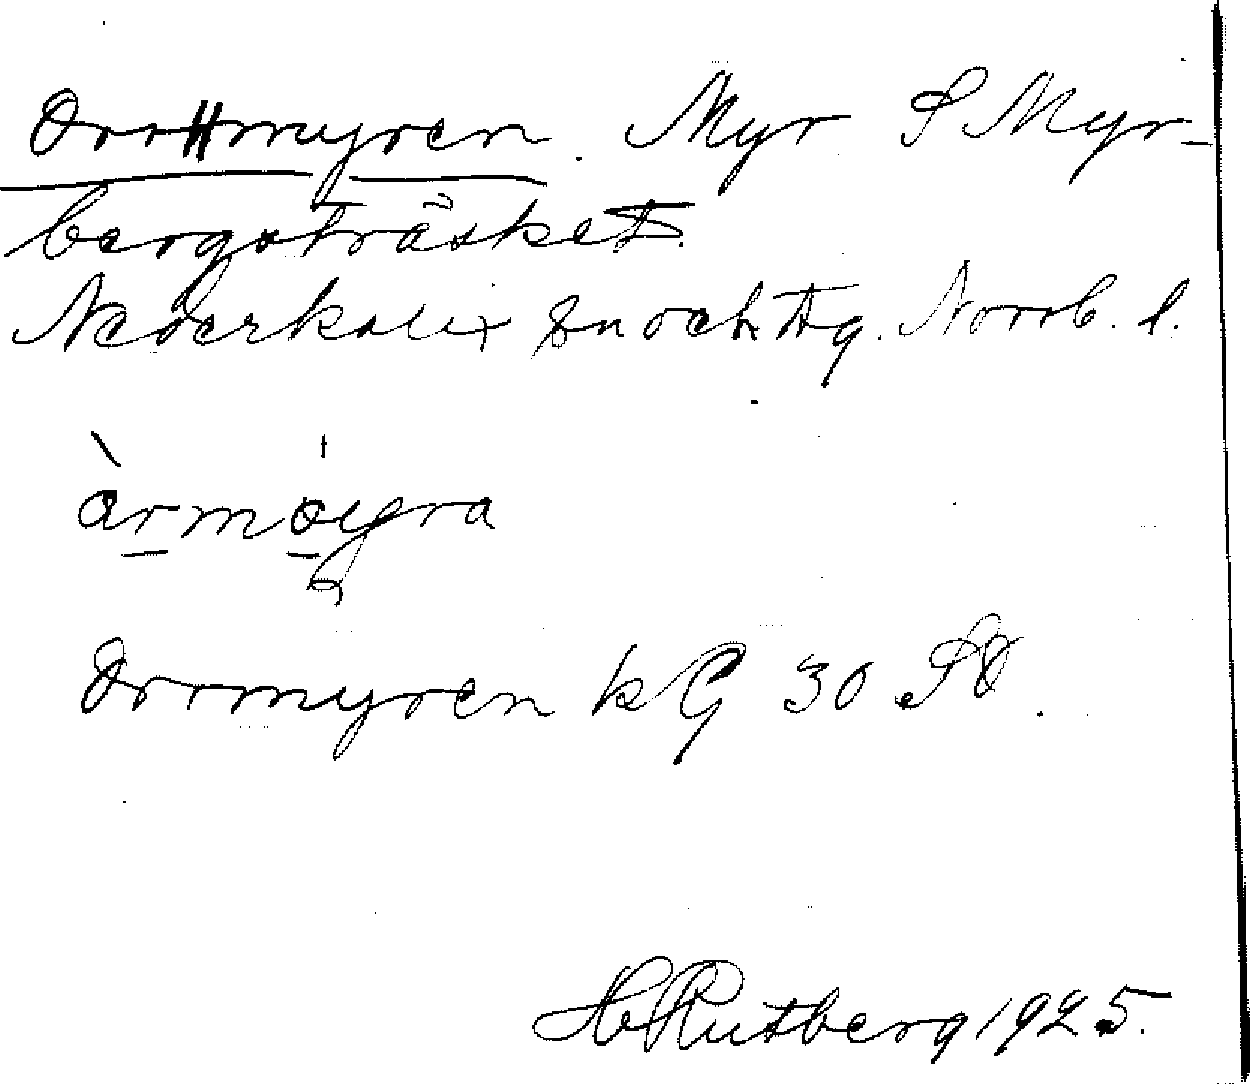 Orrttmyren. Myr S Myr-
bergsträsket.
Nederkalix sn och tg. Norrb. l.
Orrmyren kG 30 SO.
H Rutberg 1925.